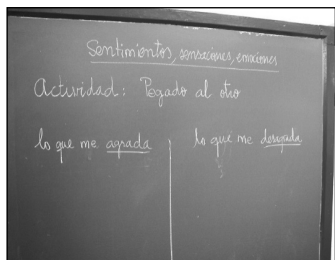 Sentimientos, sensaciones, emociones
Actividad: Pegado al otro
lo que me agrada
lo que me desagrada